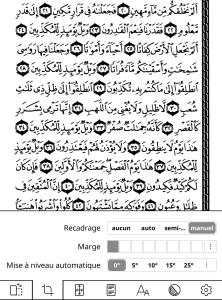 أَلَمْ نَخْلُقكُّم مِّن مَّآءٍ مَّهِينٍ ٢٠ فَجَعَلْنَٰهُ فِى قَرَارٍ مَّكِينٍ ٢١ إِلَىٰ قَدَرٍ
مَّعْلُومٍ ٢٢ فَقَدَرْنَا فَنِعْمَ ٱلْقَٰدِرُونَ ٢٣ وَيْلٌ يَوْمَئِذٍ لِّلْمُكَذِّبِينَ ٢٤
أَلَمْ نَجْعَلِ ٱلْأَرْضَ كِفَاتًا ٢٥ أَحْيَآءً وَأَمْوَٰتًا ٢٦ وَجَعَلْنَا فِيهَا رَوَٰسِىَ
شَٰمِخَٰتٍ وَأَسْقَيْنَٰكُم مَّآءً فُرَاتًا ٢٧ وَيْلٌ يَوْمَئِذٍ لِّلْمُكَذِّبِينَ ٢٨
ٱنطَلِقُوٓا۟ إِلَىٰ مَا كُنتُم بِهِۦ تُكَذِّبُونَ ٢٩ ٱنطَلِقُوٓا۟ إِلَىٰ ظِلٍّ ذِى ثَلَٰثِ
شُعَبٍ ٣٠ لَّا ظَلِيلٍ وَلَا يُغْنِى مِنَ ٱللَّهَبِ ٣١ إِنَّهَا تَرْمِى بِشَرَرٍ
كَٱلْقَصْرِ ٣٢ كَأَنَّهُۥ جِمَٰلَتٌ صُفْرٌ ٣٣ وَيْلٌ يَوْمَئِذٍ لِّلْمُكَذِّبِينَ ٣٤
هَٰذَا يَوْمُ لَا يَنطِقُونَ ٣٥ وَلَا يُؤْذَنُ لَهُمْ فَيَعْتَذِرُونَ ٣٦ وَيْلٌ يَوْمَئِذٍ
لِّلْمُكَذِّبِينَ ٣٧ هَٰذَا يَوْمُ ٱلْفَصْلِ جَمَعْنَٰكُمْ وَٱلْأَوَّلِينَ ٣٨ فَإِن كَانَ
لَكُمْ كَيْدٌ فَكِيدُونِ ٣٩ وَيْلٌ يَوْمَئِذٍ لِّلْمُكَذِّبِينَ ٤٠ إِنَّ ٱلْمُتَّقِينَ فِى
ظِلَٰلٍ وَعُيُونٍ ٤١ وَفَوَٰكِهَ مِمَّا يَشْتَهُونَ ٤٢ كُلُوا۟ وَٱشْرَبُوا۟ هَنِيٓـًٔۢا
Recadrage aucun auto semi-... manuel
Marge
Mise à niveau automatique 0° 5° 10° 15° 25°